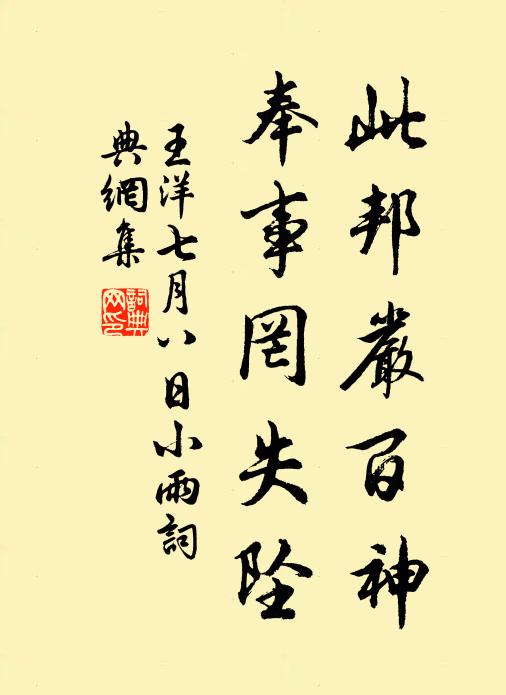 此邦嚴百神
奉事罔失墜
王洋七月八日小雨詞
典網集
詞典
網印